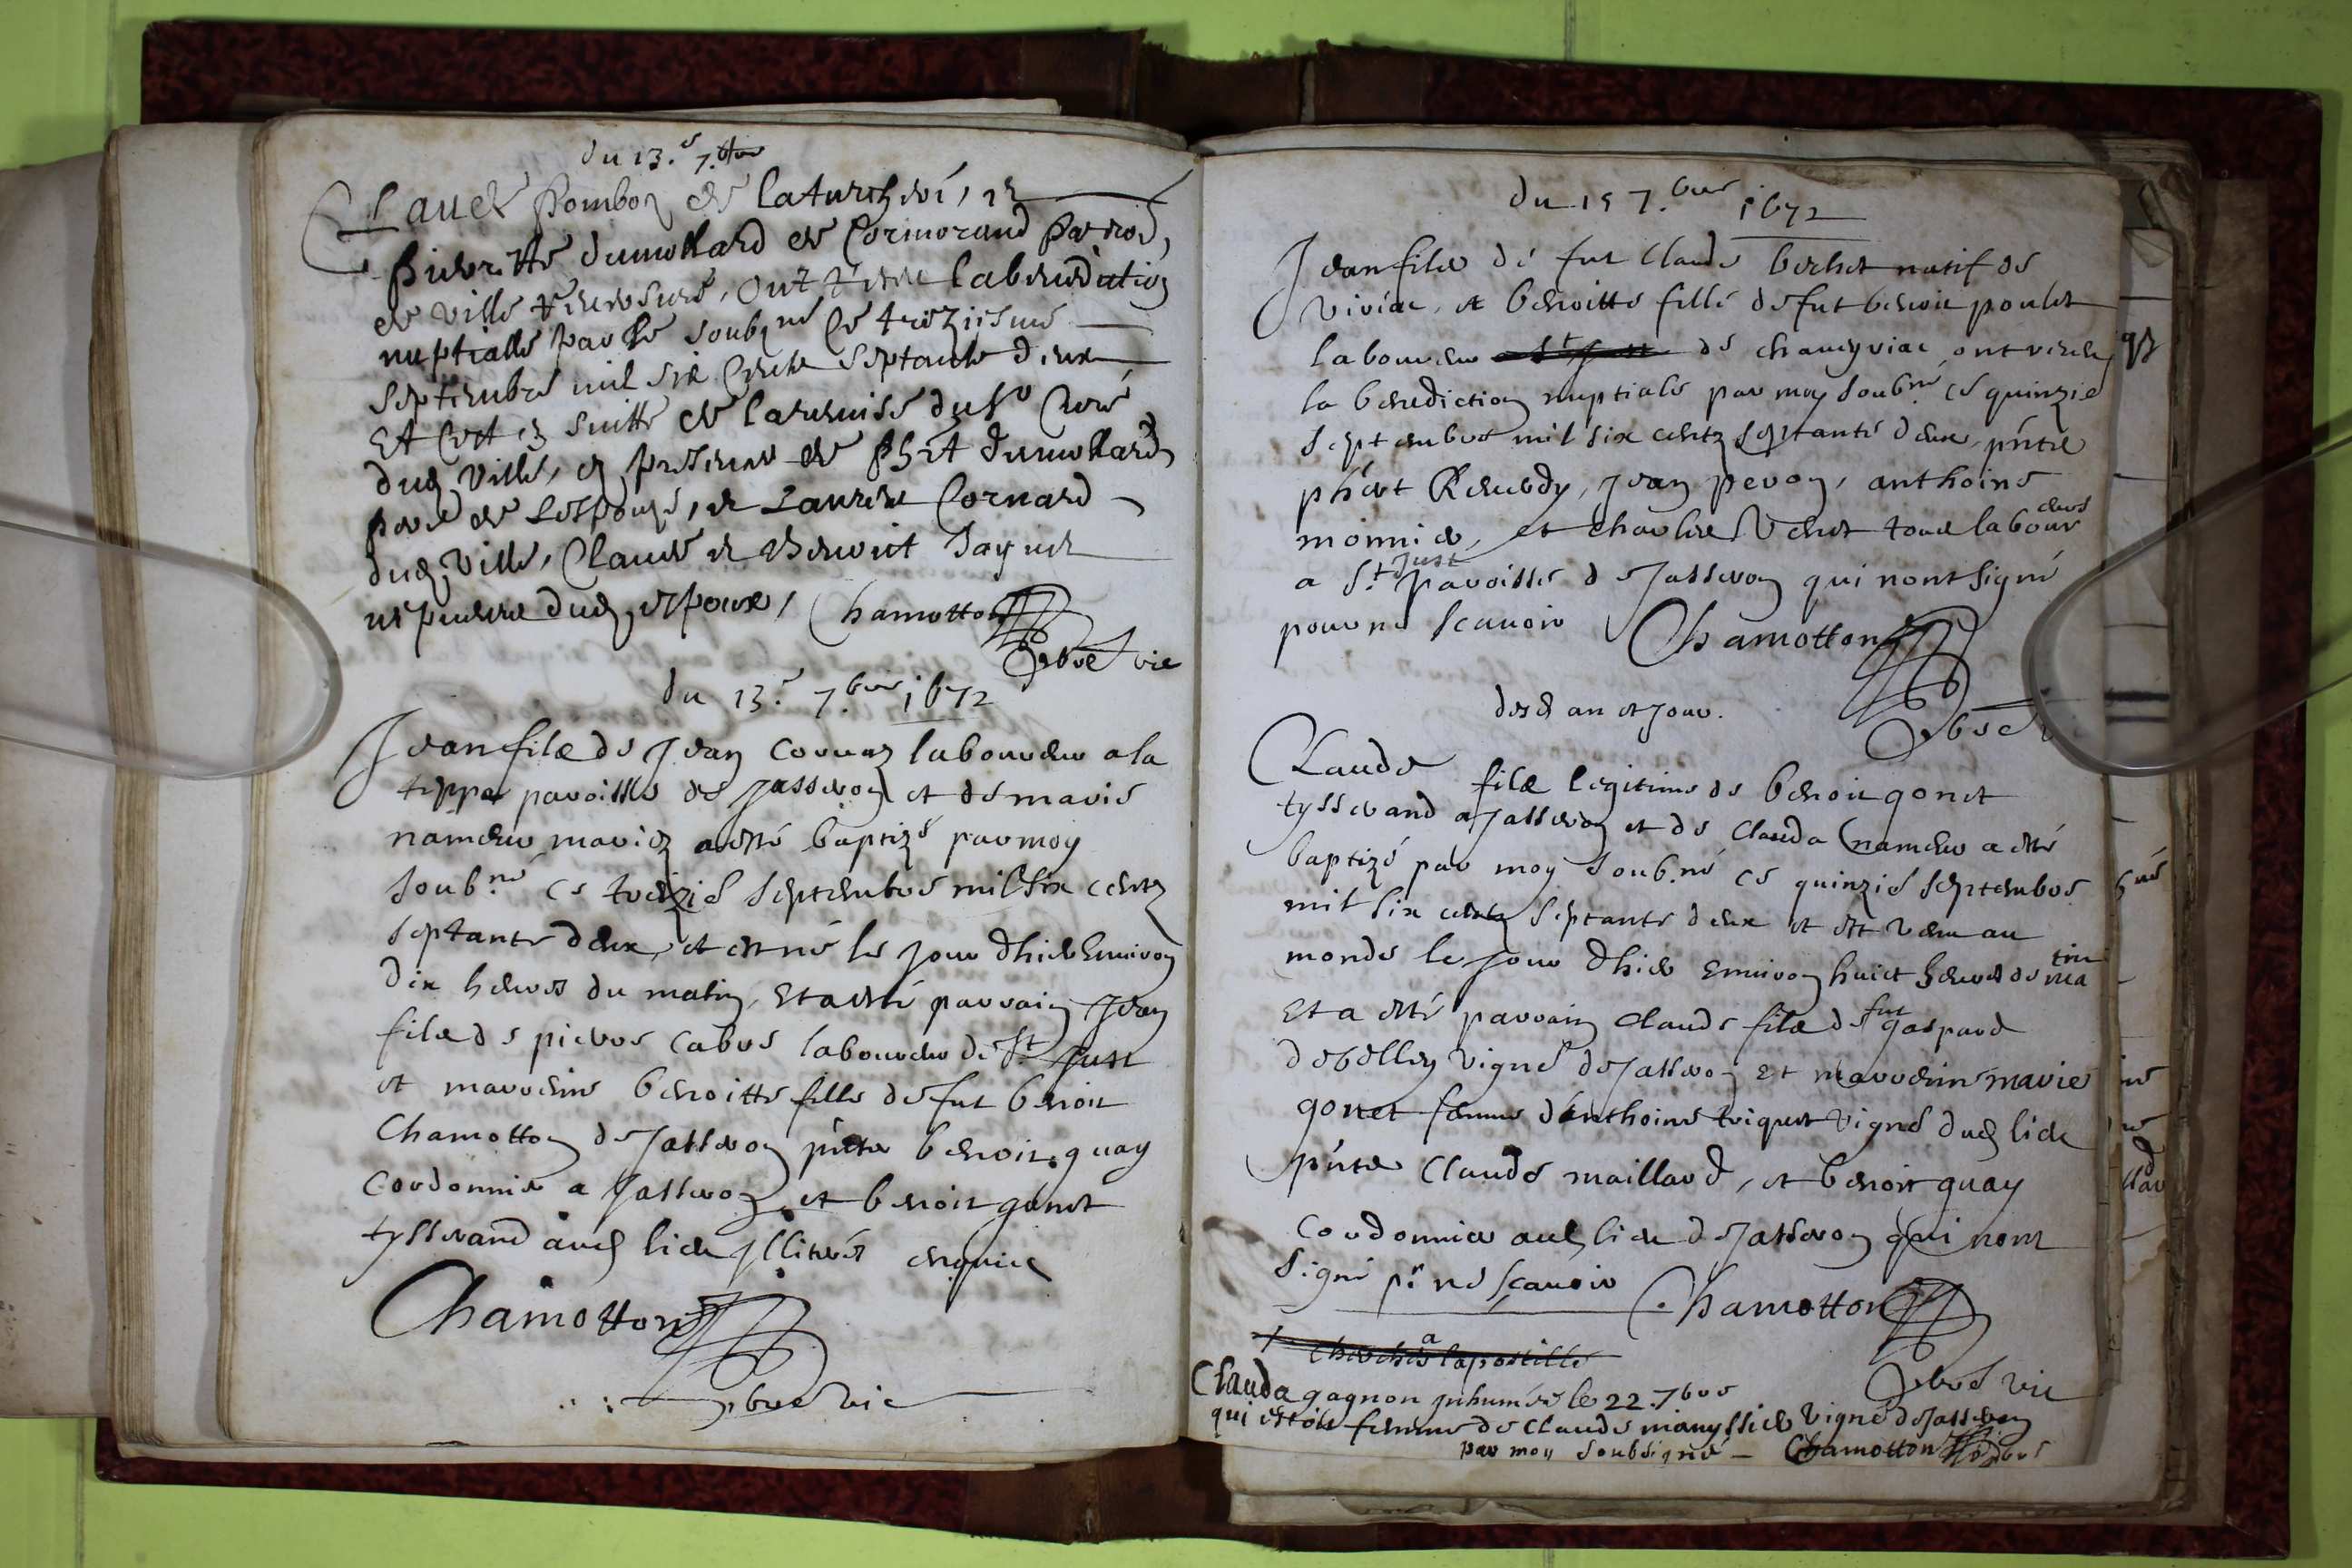 du 13.e 7.bre
Claude Pombon de la turchere, et
Pierrette dumollard de Cormorand par.
de ville reversure, ont receu la benediction
nuptialle par le soubné ce treziesme
Septembre mil six Cents septante deux
Et C'est en suitte de la remise du Sr Curé
dud. Ville, en presence de Phbt dumollard
pere de Lespouse, et Laurent Cornard
dud. Ville, Claude et Benoict
dud. espoux, Chamotton
pbre vic
du 13.e 7.bre 1672
Jean filz de Jean laboureur a la
teppe paroisse de Jasseron et de marie
nameur mariez a esté baptizé par moy
soub.né ce treizie septembre mil six centz
septante deux, et est né le jour d'hier Environ
dix heures du matin, Et a esté parrain Jean
filz de pierre cabre laboureur de St Just
et marreine benoitte fille de fut benoit
Chamotton de Jasseron pntz benoit quay
cordonnier a Jasseron et benoit gonet
tysserand aud. lieu Illiterés enquis
Chamotton
pbre vic
du 15 7.bre 1672
Jean filz de fut Claude berhet natif de
viriac, et benoitte fille de fut benoit poulet
laboureur St Just de chaveyriac ont receu
la benediction nuptiale par moy soub.né ce quinzie
septembre mil six centz septante deux, pntz
phbert Remendy, Jean peron, anthoine
monnier, et charles Venet tous laboureurs
a St Just paroisse de Jasseron qui n'ont signé
pour ne scavoir Chamotton
pbre
desd. an et jour.
Claude filz legitime de benoit gonet
tysserand a Jasseron et de Clauda nameur a esté
baptizé par moy soub.né ce quinzie septembre
mil six centz septante deux et est venu au
monde le jour d'hier Environ huict heures de matin
Et a esté parrain Claude filz de fut gaspard
debelley vigne de Jasseron Et marreine marie
gonet femme d'anthoine triquet vigne dud. lieu
pntz Claude maillard, et benoit quay
cordonnier aud. lieu de Jasseron qui n'ont
signé pr ne scavoir Chamotton
pbre vic
cherches a lapostille
Clauda gagnon inhumée le 22. 7bre
qui estoit femme de Claude manyssier vigne de Jasseron
par moy soubsigné - Chamotton pbre